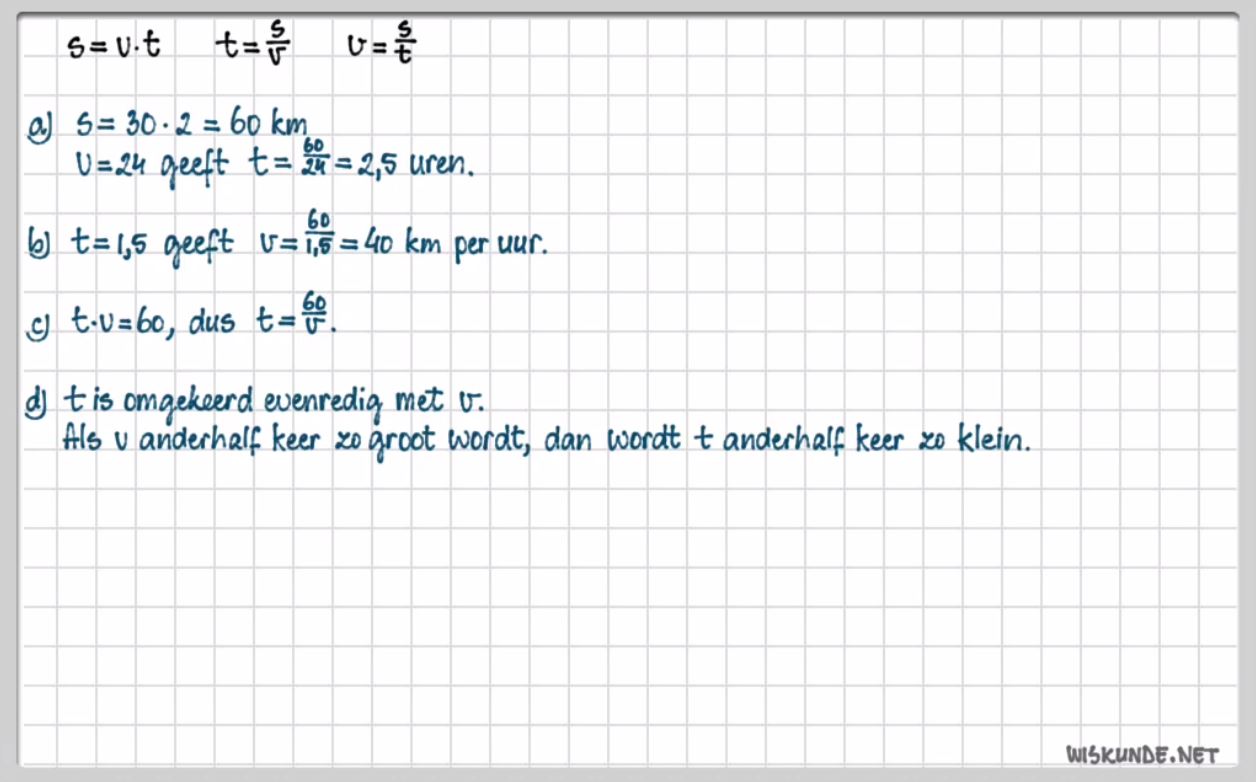 s = v·t    t = s/v    v = s/t
a) s = 30 · 2 = 60 km
v = 24 geeft t = 60/24 = 2,5 uren.
b) t = 1,5 geeft v = 60/1,5 = 40 km per uur.
c) t·v = 60, dus t = 60/v.
d) t is omgekeerd evenredig met v.
Als v anderhalf keer zo groot wordt, dan wordt t anderhalf keer zo klein.
WISKUNDE.NET